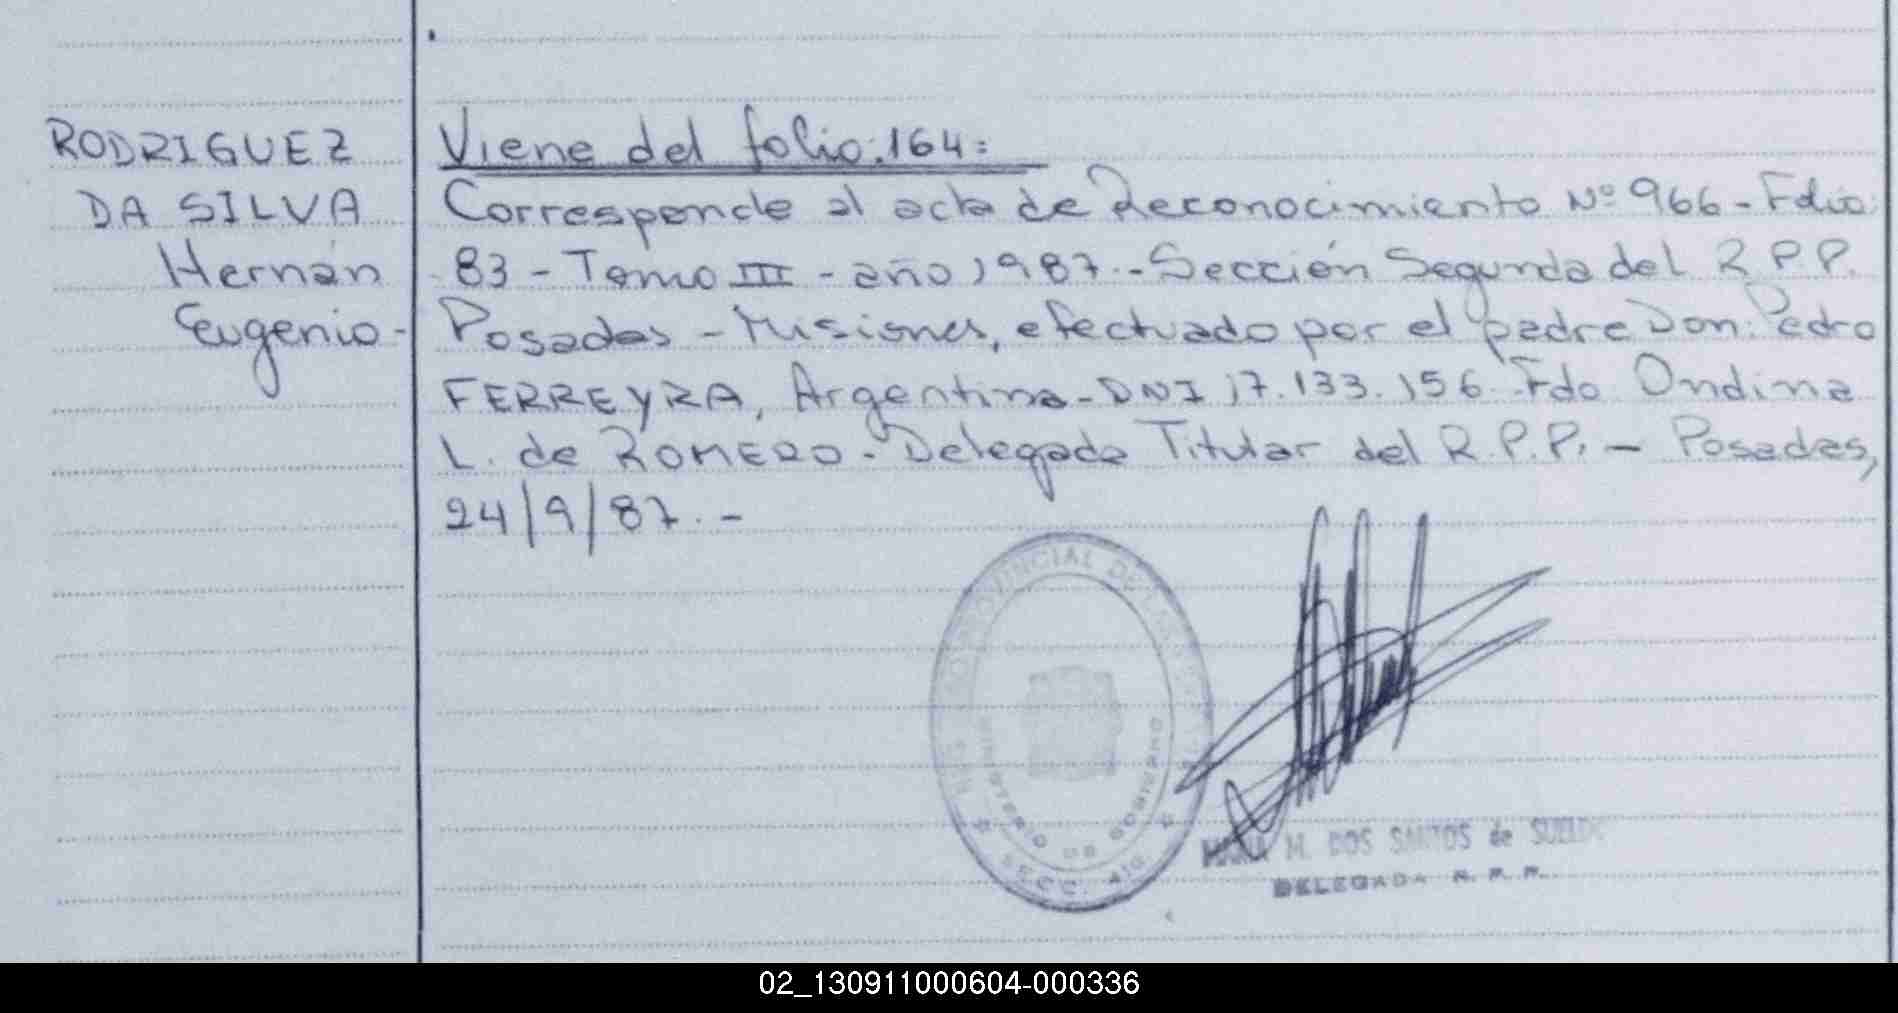 RODRIGUEZ
DA SILVA
Hernán
Eugenio-
Viene del folio: 164:
Corresponde al acta de Reconocimiento Nº 966 - Folio:
83 - Tomo III - año 1987.- Sección Segunda del R P P.
Posadas - Misiones, efectuado por el padre Don: Pedro
FERREYRA, Argentino - DNI 17.133.156. Fdo Ondina
L. de ROMERO - Delegada Titular del R.P.P. - Posadas,
24/9/87. -
PROVINCIAL DE LAS
MINISTERIO DE GOBIERNO
SECC.
MARIA M. DOS SANTOS de SUELDO
DELEGADA R. P. P.
02_130911000604-000336